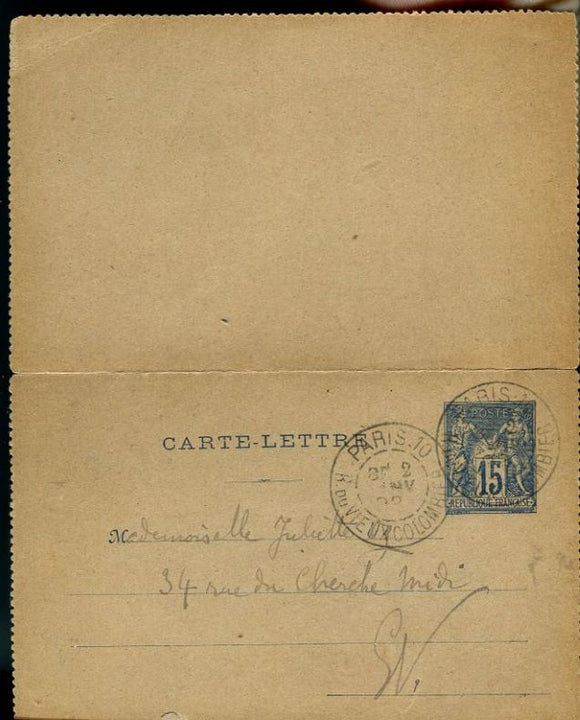 CARTE-LETTRE
PARIS.10
R. DU VIEUX COLOMBIER
PARIS.1
OMBIER
POSTE
15
REPUBLIQUE FRANÇAISE
Mademoiselle Juliette
34 rue du Cherche Midi